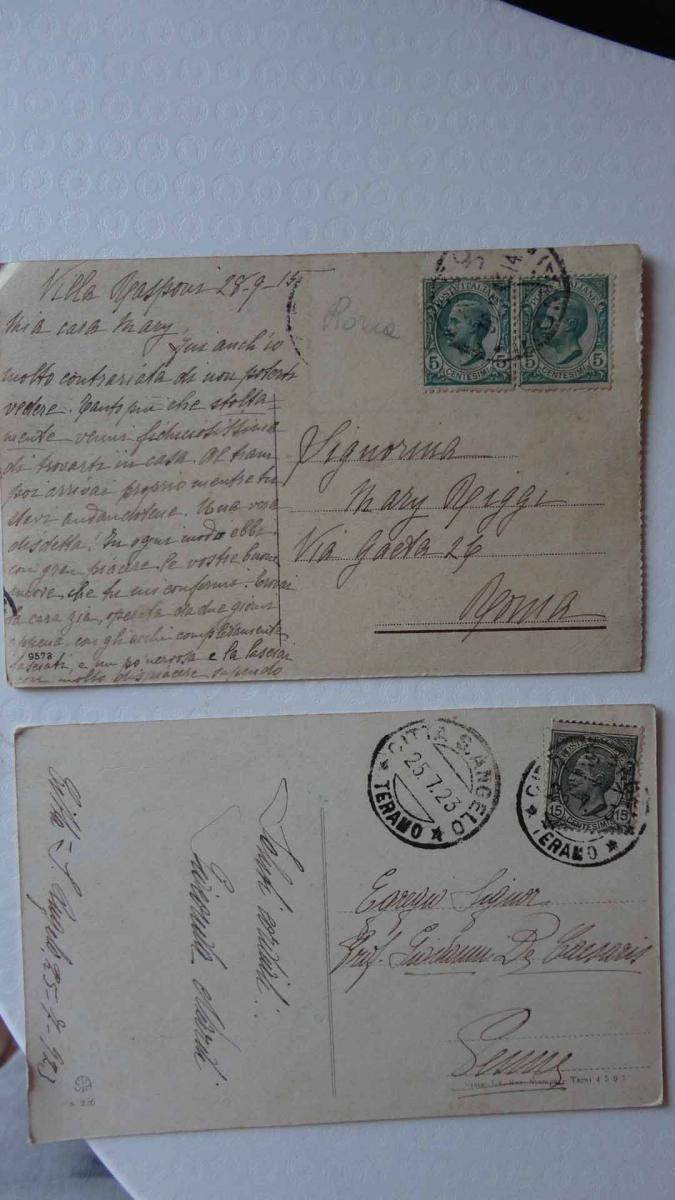 Villa Rasponi 28-9-15
Mia cara Mary,
Fui anch'io
molto contrariata di non poterti
vedere. Tanto più che stolta-
mente venni fiduciosissima
di trovarti in casa. Al tram
poi arrivai proprio mentre tu
stavi andandotene. Una vera
disdetta! In ogni modo ebbi
con gran piacere le vostre buone
nuove, che tu mi confermi. Trovai
la cara zia, operata da due giorni
appena, con gli occhi completamente
fasciati, e un po' nervosa e la lasciai
con molto dispiacere sapendo
9573
Roma
POSTE ITALIANE
5 CENTESIMI 5
POSTE ITALIANE
5 CENTESIMI 5
Signorina
Mary Riggi
Via Gaeta 26
Roma
CITTÀ S. ANGELO
25.7.23
TERAMO
15 CENTESIMI 15
TERAMO
Egregio Signor
Prof. Giovanni De Caesaris
Penne
Città S. Angelo, 25-7-1923
Saluti cordiali
Terni 4591